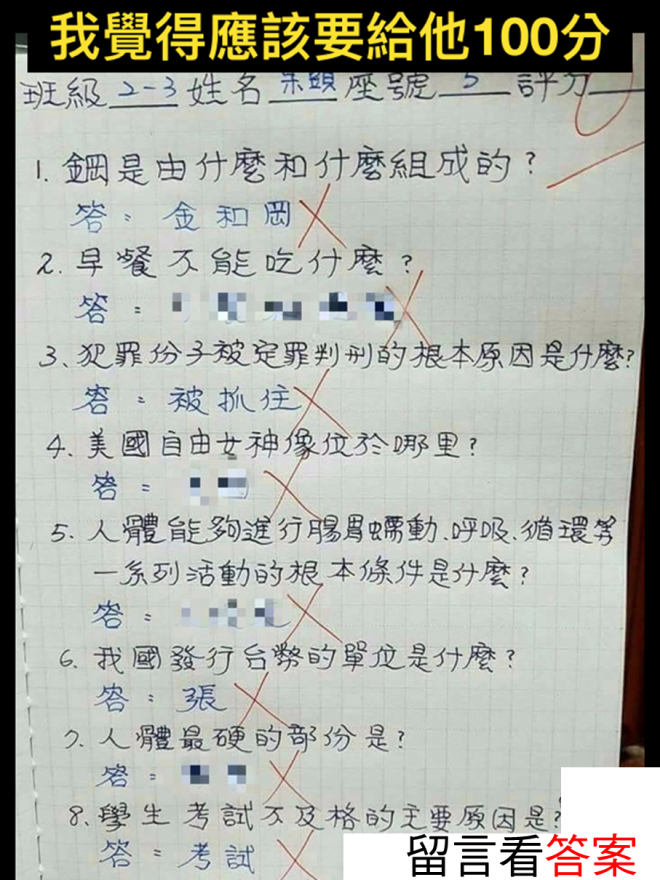 我覺得應該要給他100分
班級 2-3 姓名 朱頭 座號 5 評分
1. 鋼是由什麼和什麼組成的?
答: 金和岡
2. 早餐不能吃什麼?
答:
3、犯罪份子被定罪判刑的根本原因是什麼?
答: 被抓住
4、美國自由女神像位於哪里?
答:
5、人體能夠進行腸胃蠕動、呼吸、循環等
一系列活動的根本條件是什麼?
答:
6、我國發行台幣的單位是什麼?
答: 張
7、人體最硬的部份是?
答:
8、學生考試不及格的主要原因是?
答: 考試
留言看答案